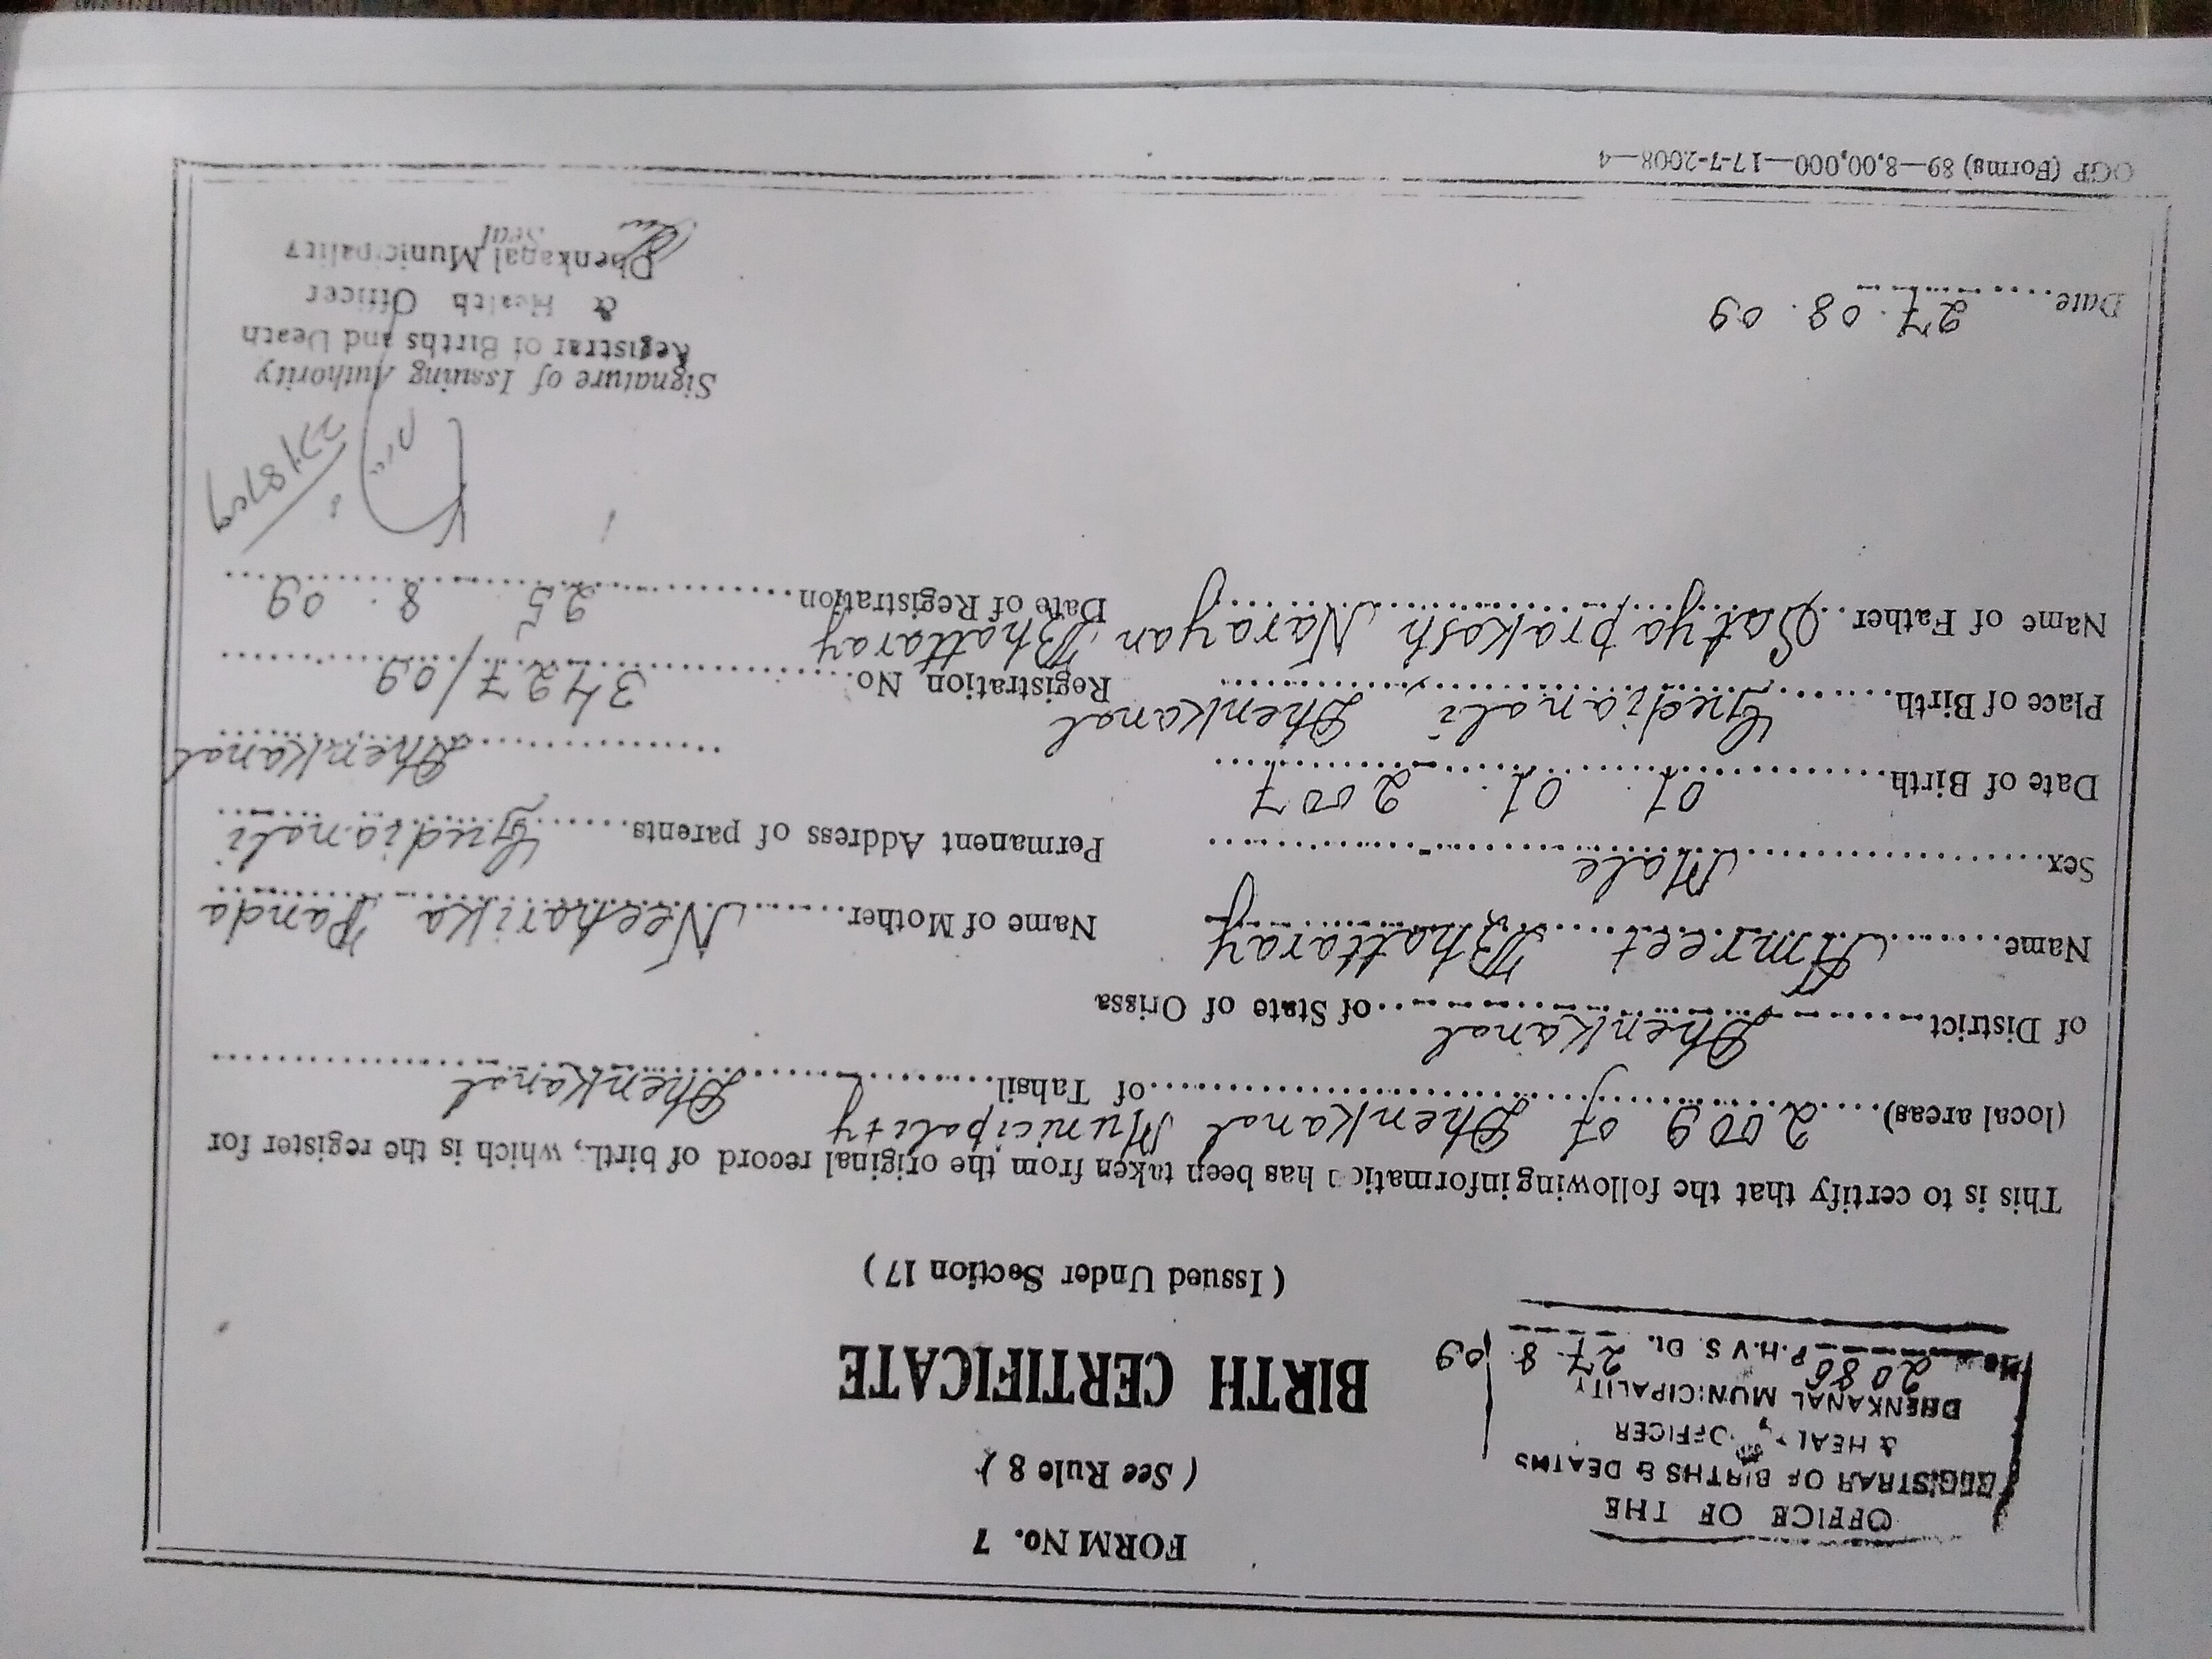 OFFICE OF THE
REGISTRAR OF BIRTHS & DEATHS
& HEALTH OFFICER
DHENKANAL MUNICIPALITY
No 2086 P.H.V S. Dt. 27.8.09
FORM No. 7
( See Rule 8 )
BIRTH CERTIFICATE
( Issued Under Section 17 )
This is to certify that the following information has been taken from the original record of birth, which is the register for
(local areas) 2009 of Dhenkanal Municipality of Tahsil Dhenkanal
of District Dhenkanal of State of Orissa
Name Amreet Bhattaray
Name of Mother Neeharika Panda
Sex Male
Permanent Address of parents Gudianali
Dhenkanal
Date of Birth 01. 01. 2007
Place of Birth Gudianali, Dhenkanal
Registration No. 3427/09
Name of Father Satyaprakash Narayan Bhattaray
Date of Registration 25. 8. 09
27/8/09
Signature of Issuing Authority
Registrar of Births and Death
& Health Officer
Dhenkanal Municipality
Seal
Date 27. 08. 09
OGP (Forms) 89—8,00,000—17-7-2008—4